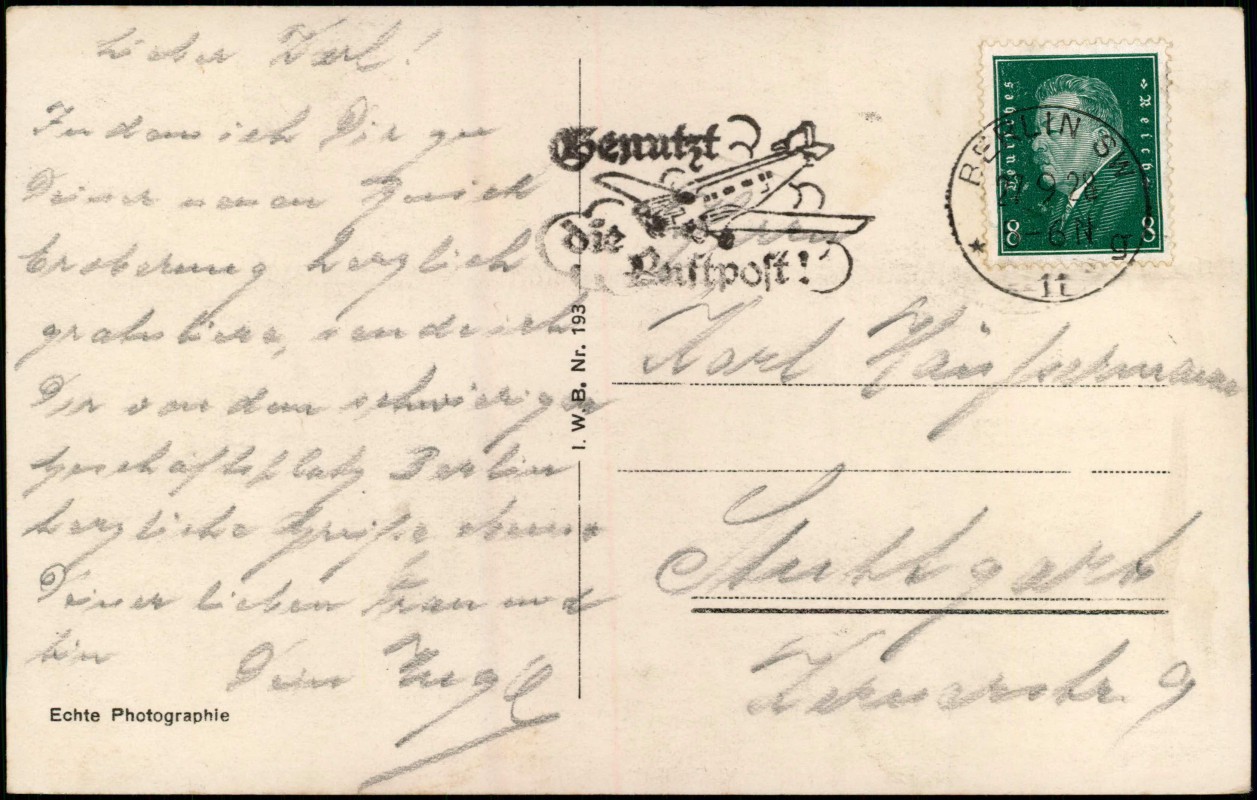 Lieber Karl!
Indem ich Dir zu
Deiner neuen
Eroberung herzlich
gratuliere, sende ich
Dir von dem schwierigen
Geschäftsplatz Berlin
herzliche Grüße ebenso
Deiner lieben Frau und
bin Dein
Echte Photographie
I. W. B. Nr. 193
Benutzt
die
Luftpost!
Deutsches Reich
8 8
BERLIN SW
9.29
-6N
11 g
Herrn
Karl Häußermann
Stuttgart
Wernerstr. 9